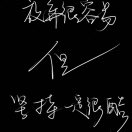 放弃很容易
但
坚持一定很酷